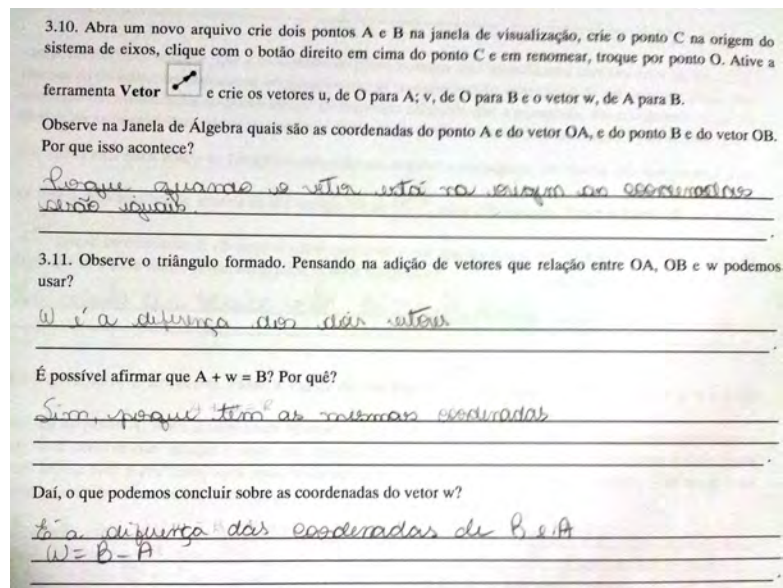 3.10. Abra um novo arquivo crie dois pontos A e B na janela de visualização, crie o ponto C na origem do
sistema de eixos, clique com o botão direito em cima do ponto C e em renomear, troque por ponto O. Ative a
ferramenta Vetor e crie os vetores u, de O para A; v, de O para B e o vetor w, de A para B.
Observe na Janela de Álgebra quais são as coordenadas do ponto A e do vetor OA, e do ponto B e do vetor OB.
Por que isso acontece?
Porque quando o vetor está na origem as coordenadas
serão iguais.
3.11. Observe o triângulo formado. Pensando na adição de vetores que relação entre OA, OB e w podemos
usar?
W é a diferença dos dois vetores
É possível afirmar que A + w = B? Por quê?
Sim, porque tem as mesmas coordenadas
Daí, o que podemos concluir sobre as coordenadas do vetor w?
É a diferença das coordenadas de B e A
W = B - A